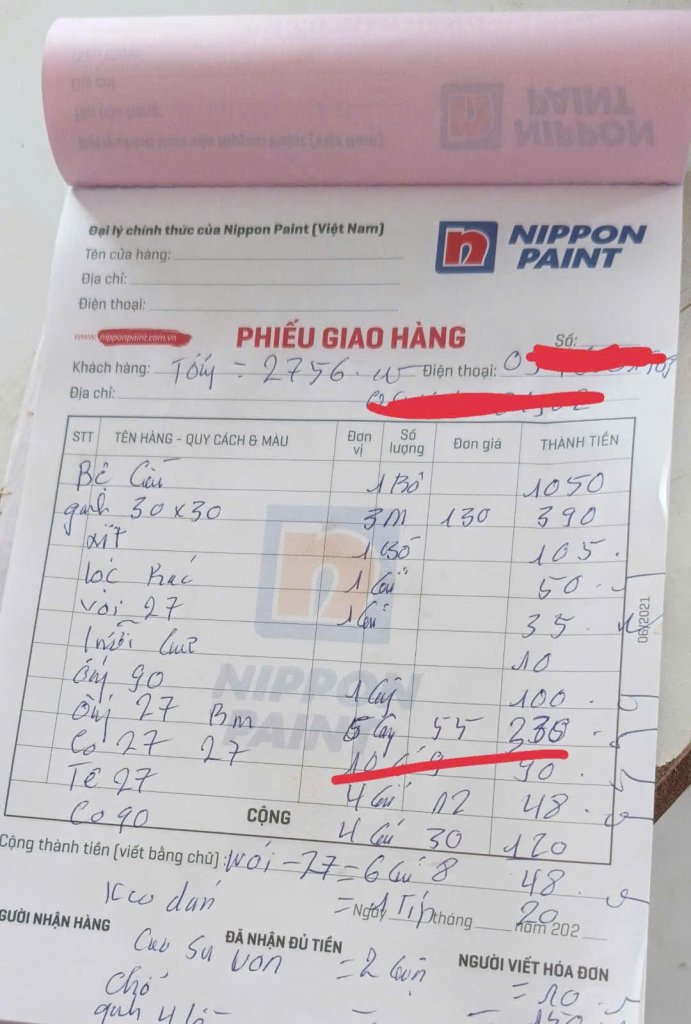 Đại lý chính thức của Nippon Paint (Việt Nam)
NIPPON PAINT
Tên cửa hàng:
Địa chỉ:
Điện thoại:
www.nipponpaint.com.vn
PHIẾU GIAO HÀNG
Số:
Khách hàng: = 2756 Điện thoại:
Địa chỉ:
STT TÊN HÀNG - QUY CÁCH & MÀU Đơn vị Số lượng Đơn giá THÀNH TIỀN
Bệ Cầu 1 Bộ 1050
gạch 30x30 3m 130 390
xịt 1 Bộ 105
lọc Rác 1 Cái 50
vòi 27 1 Cái 35
10
ống 90 1 Cây 100
ống 27 Bm 5 Cây 55
Co 27 27 90
Tê 27 4 Cái 12 48
Co 90 4 Cái 30 120
CỘNG
Cộng thành tiền (viết bằng chữ): 27 = 6 Cái 8 48
Keo dán = 1 Tip 20
Ngày tháng năm 202
NGƯỜI NHẬN HÀNG ĐÃ NHẬN ĐỦ TIỀN NGƯỜI VIẾT HÓA ĐƠN
Cao su von = 2 Cuộn = 10
06/2021